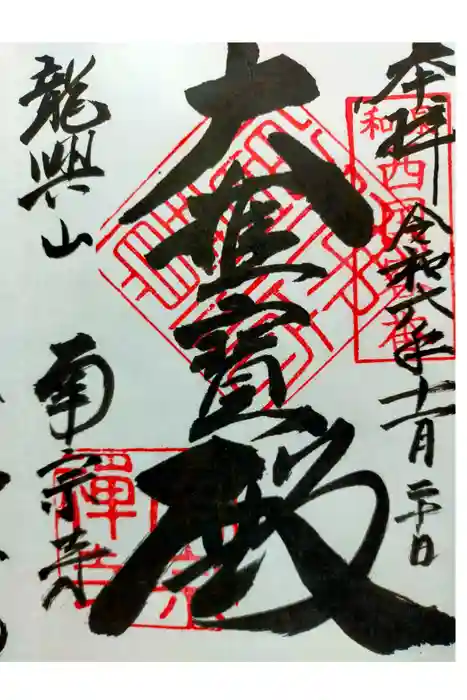 奉拝 令和六年十一月二十日
大雄寶殿
龍興山 南宗寺
和泉西国
禪寺